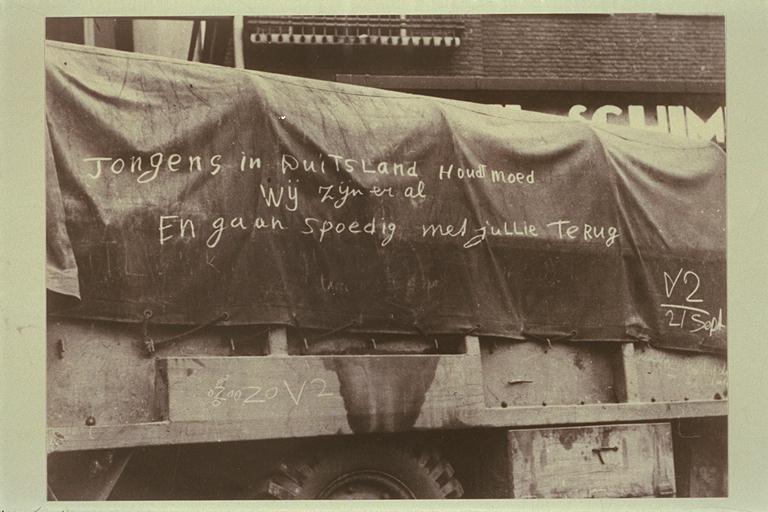 SCHIM
Jongens in Duitsland Houdt moed
Wij zijn er al
En gaan spoedig met jullie Terug
V2
21 Sept
ZO V2